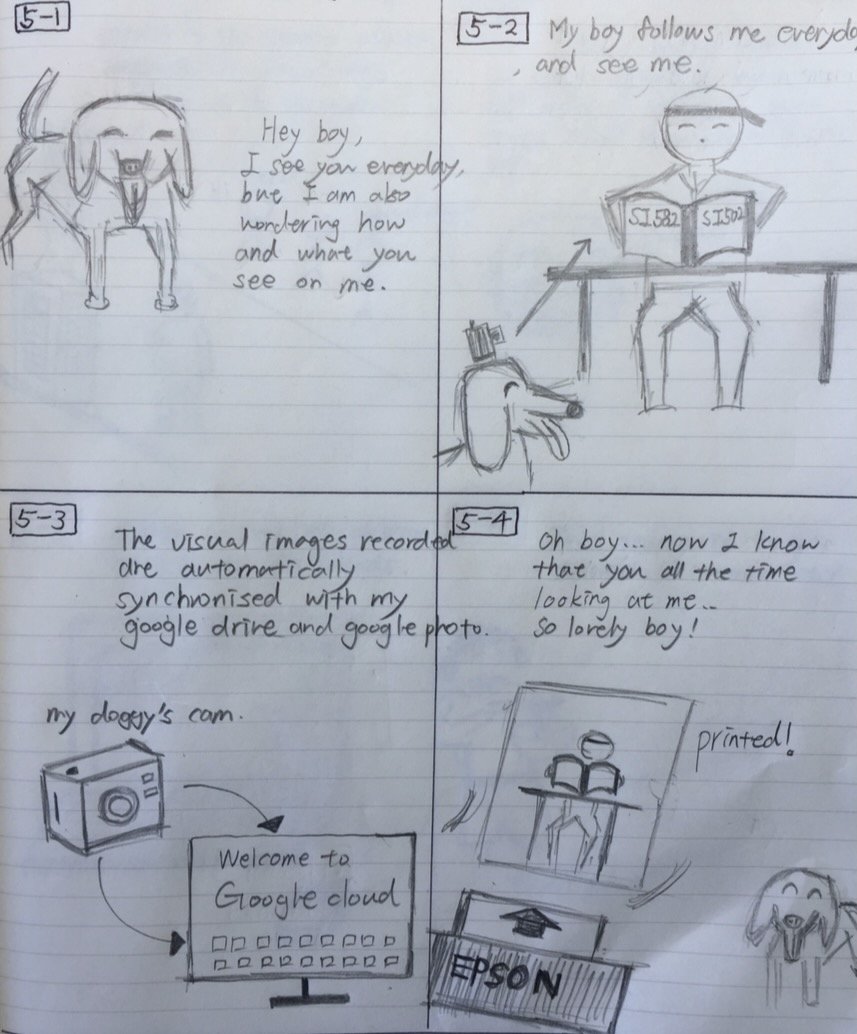 5-1
Hey boy,
I see you everyday,
but I am also
wondering how
and what you
see on me.
5-2
My boy follows me everyday
, and see me.
SI582 SI502
5-3
The visual images recorded
are automatically
synchronised with my
google drive and google photo.
my doggy's cam.
Welcome to
Google cloud
5-4
Oh boy... now I know
that you all the time
looking at me..
So lovely boy!
printed!
EPSON